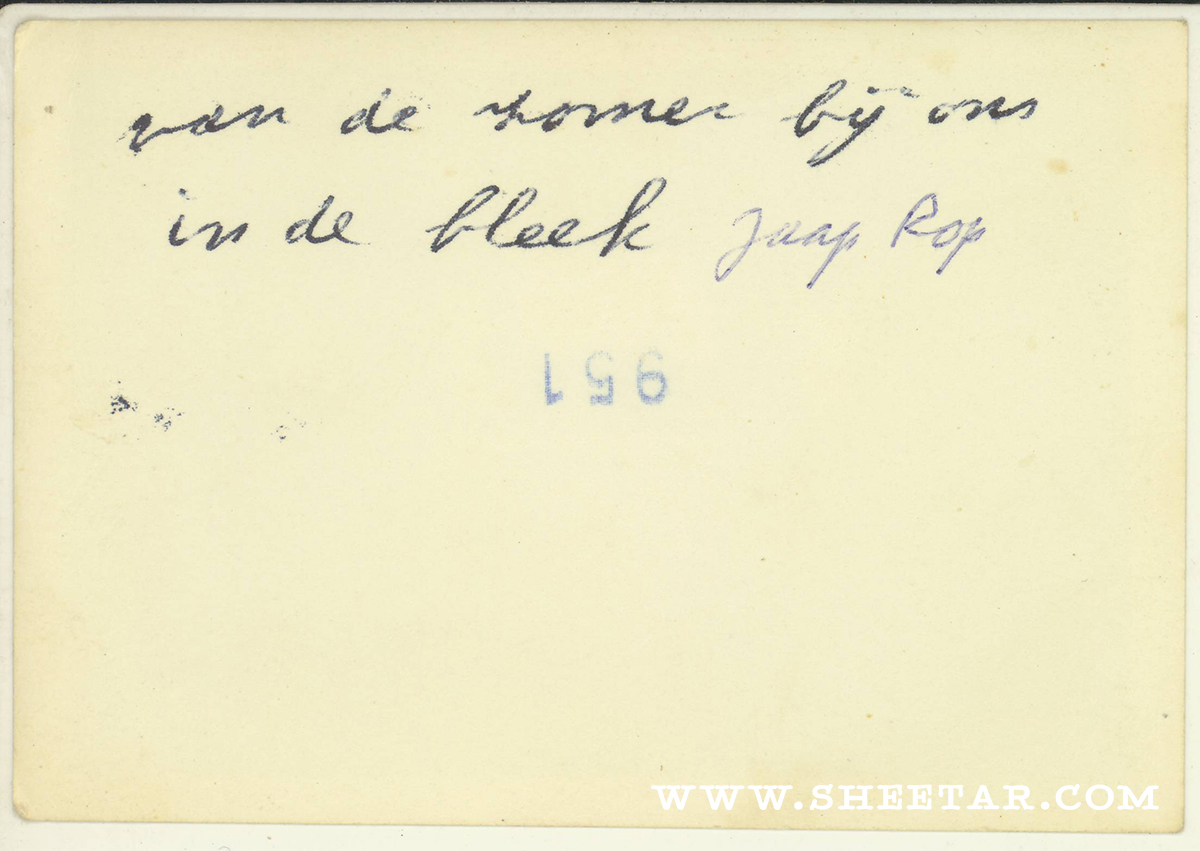 van de zomer bij ons
in de bleek Jaap Rop
951
WWW.SHEETAR.COM